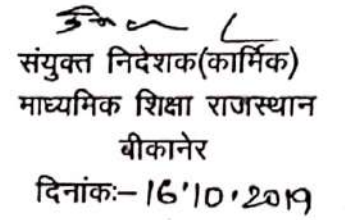 संयुक्त निदेशक(कार्मिक)
माध्यमिक शिक्षा राजस्थान
बीकानेर
दिनांकः– 16.10.2019